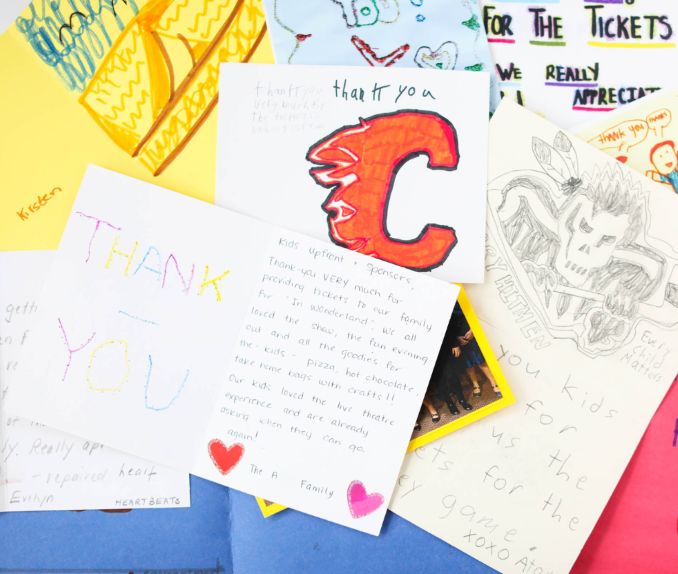 FOR THE TICKETS
WE REALLY
APPRECIATE
thank you
thank you
very much
thank you
thanks
Kirsten
THANK
YOU
Kids Upfront + Sponsors,
Thank-you VERY much for
providing tickets to our family
for "In Wonderland". We all
loved the show, the fun evening
out and all the goodies for
the kids - pizza, hot chocolate,
take home bags with crafts!!
Our kids loved the live theatre
experience and are already
asking when they can go
again!
The A Family
Every
Child
Matters
you Kids
for
us the
for the
game.
xoxo
getti
Really
- repaired heart
Evelyn
HEARTBEATS